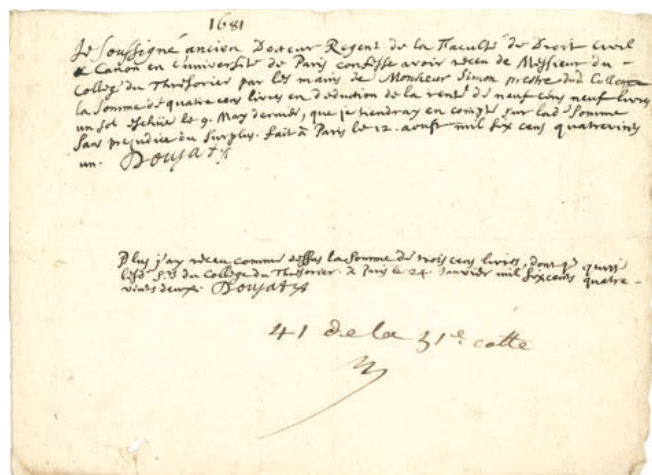 1681
Je Soussigné ancien Docteur Regent de la Faculté de Droit Civil
& Canon en l'université de Paris confesse avoir receu de Messieurs du
College du Thresorier par les mains de Monsieur Simon prestre dud. College
la Somme de quatre cens livres en deduction de la rente de neuf cens neuf livres
un sol escheüe le 9. May dernier, que je tiendray en compte sur lad. Somme
sans prejudice du Surplus. fait à Paris le 12. aoust mil six cens quatrevints
un. Doujat
Plus j'ay receu comme dessus la Somme de trois cens livres, dont je quitte
lesd. Srs du College du Thresorier. à Paris le 24 Janvier mil sixcents quatre-
vints deux. Doujat
41 de la 31e cotte